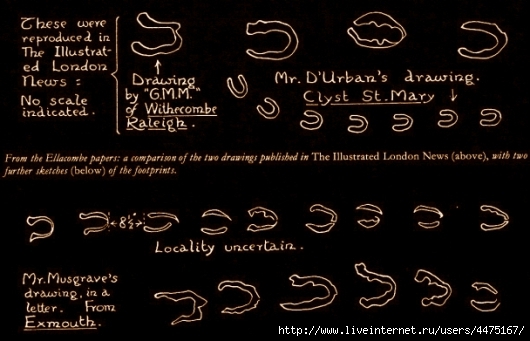 These were
reproduced in
The Illustrat-
ed London
News :
No scale
indicated.
Drawing
by "G.M.M."
of Withecombe
Raleigh.
Mr. D'Urban's drawing.
Clyst St. Mary
From the Ellacombe papers: a comparison of the two drawings published in The Illustrated London News (above), with two
further sketches (below) of the footprints.
8½"
Locality uncertain.
Mr. Musgrave's
drawing, in a
letter. From
Exmouth.
http://www.liveinternet.ru/users/4475167/